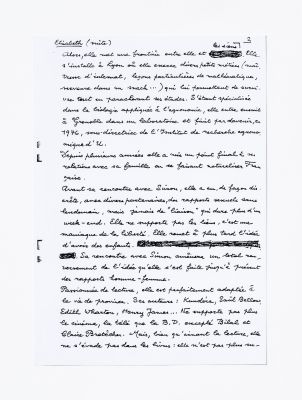 Elisabeth (suite)
2
Alors, elle met une frontière entre elle et les siens. Elle
s'installe à Lyon où elle exerce divers petits métiers (maî-
tresse d'internat, leçons particulières de mathématique,
serveuse dans un snack...) qui lui permettent de survi-
vre tout en poursuivant ses études. S'étant spécialisée
dans la biologie appliquée à l'agronomie, elle entre ensuite
à Grenoble dans un laboratoire et finit par devenir, en
1976, sous-directrice de l'Institut de recherche agrono-
mique d'U.
Depuis plusieurs années elle a mis un point final à ses
relations avec sa famille en se faisant naturaliser Fran-
çaise.
Avant sa rencontre avec Simon, elle a eu, de façon dis-
crète, avec divers partenaires, des rapports sexuels sans
lendemain, mais jamais de "liaison" qui dure plus d'un
week-end. Elle ne supporte pas les liens, c'est une
maniaque de la liberté. Elle remet à plus tard l'idée
d'avoir des enfants.
Sa rencontre avec Simon amènera un total ren-
versement de l'idée qu'elle s'est faite jusqu'à présent
des rapports homme-femme.
Passionnée de lecture, elle est parfaitement adaptée à
la vie de province. Ses auteurs : Kundera, Saül Bellow,
Edith Wharton, Henry James... Ne supporte pas plus
le cinéma, la télé que la B.D. excepté Bilal et
Claire Bretécher. Mais, bien qu'aimant la lecture, elle
ne s'évade pas dans les livres : elle n'est pas plus ma-